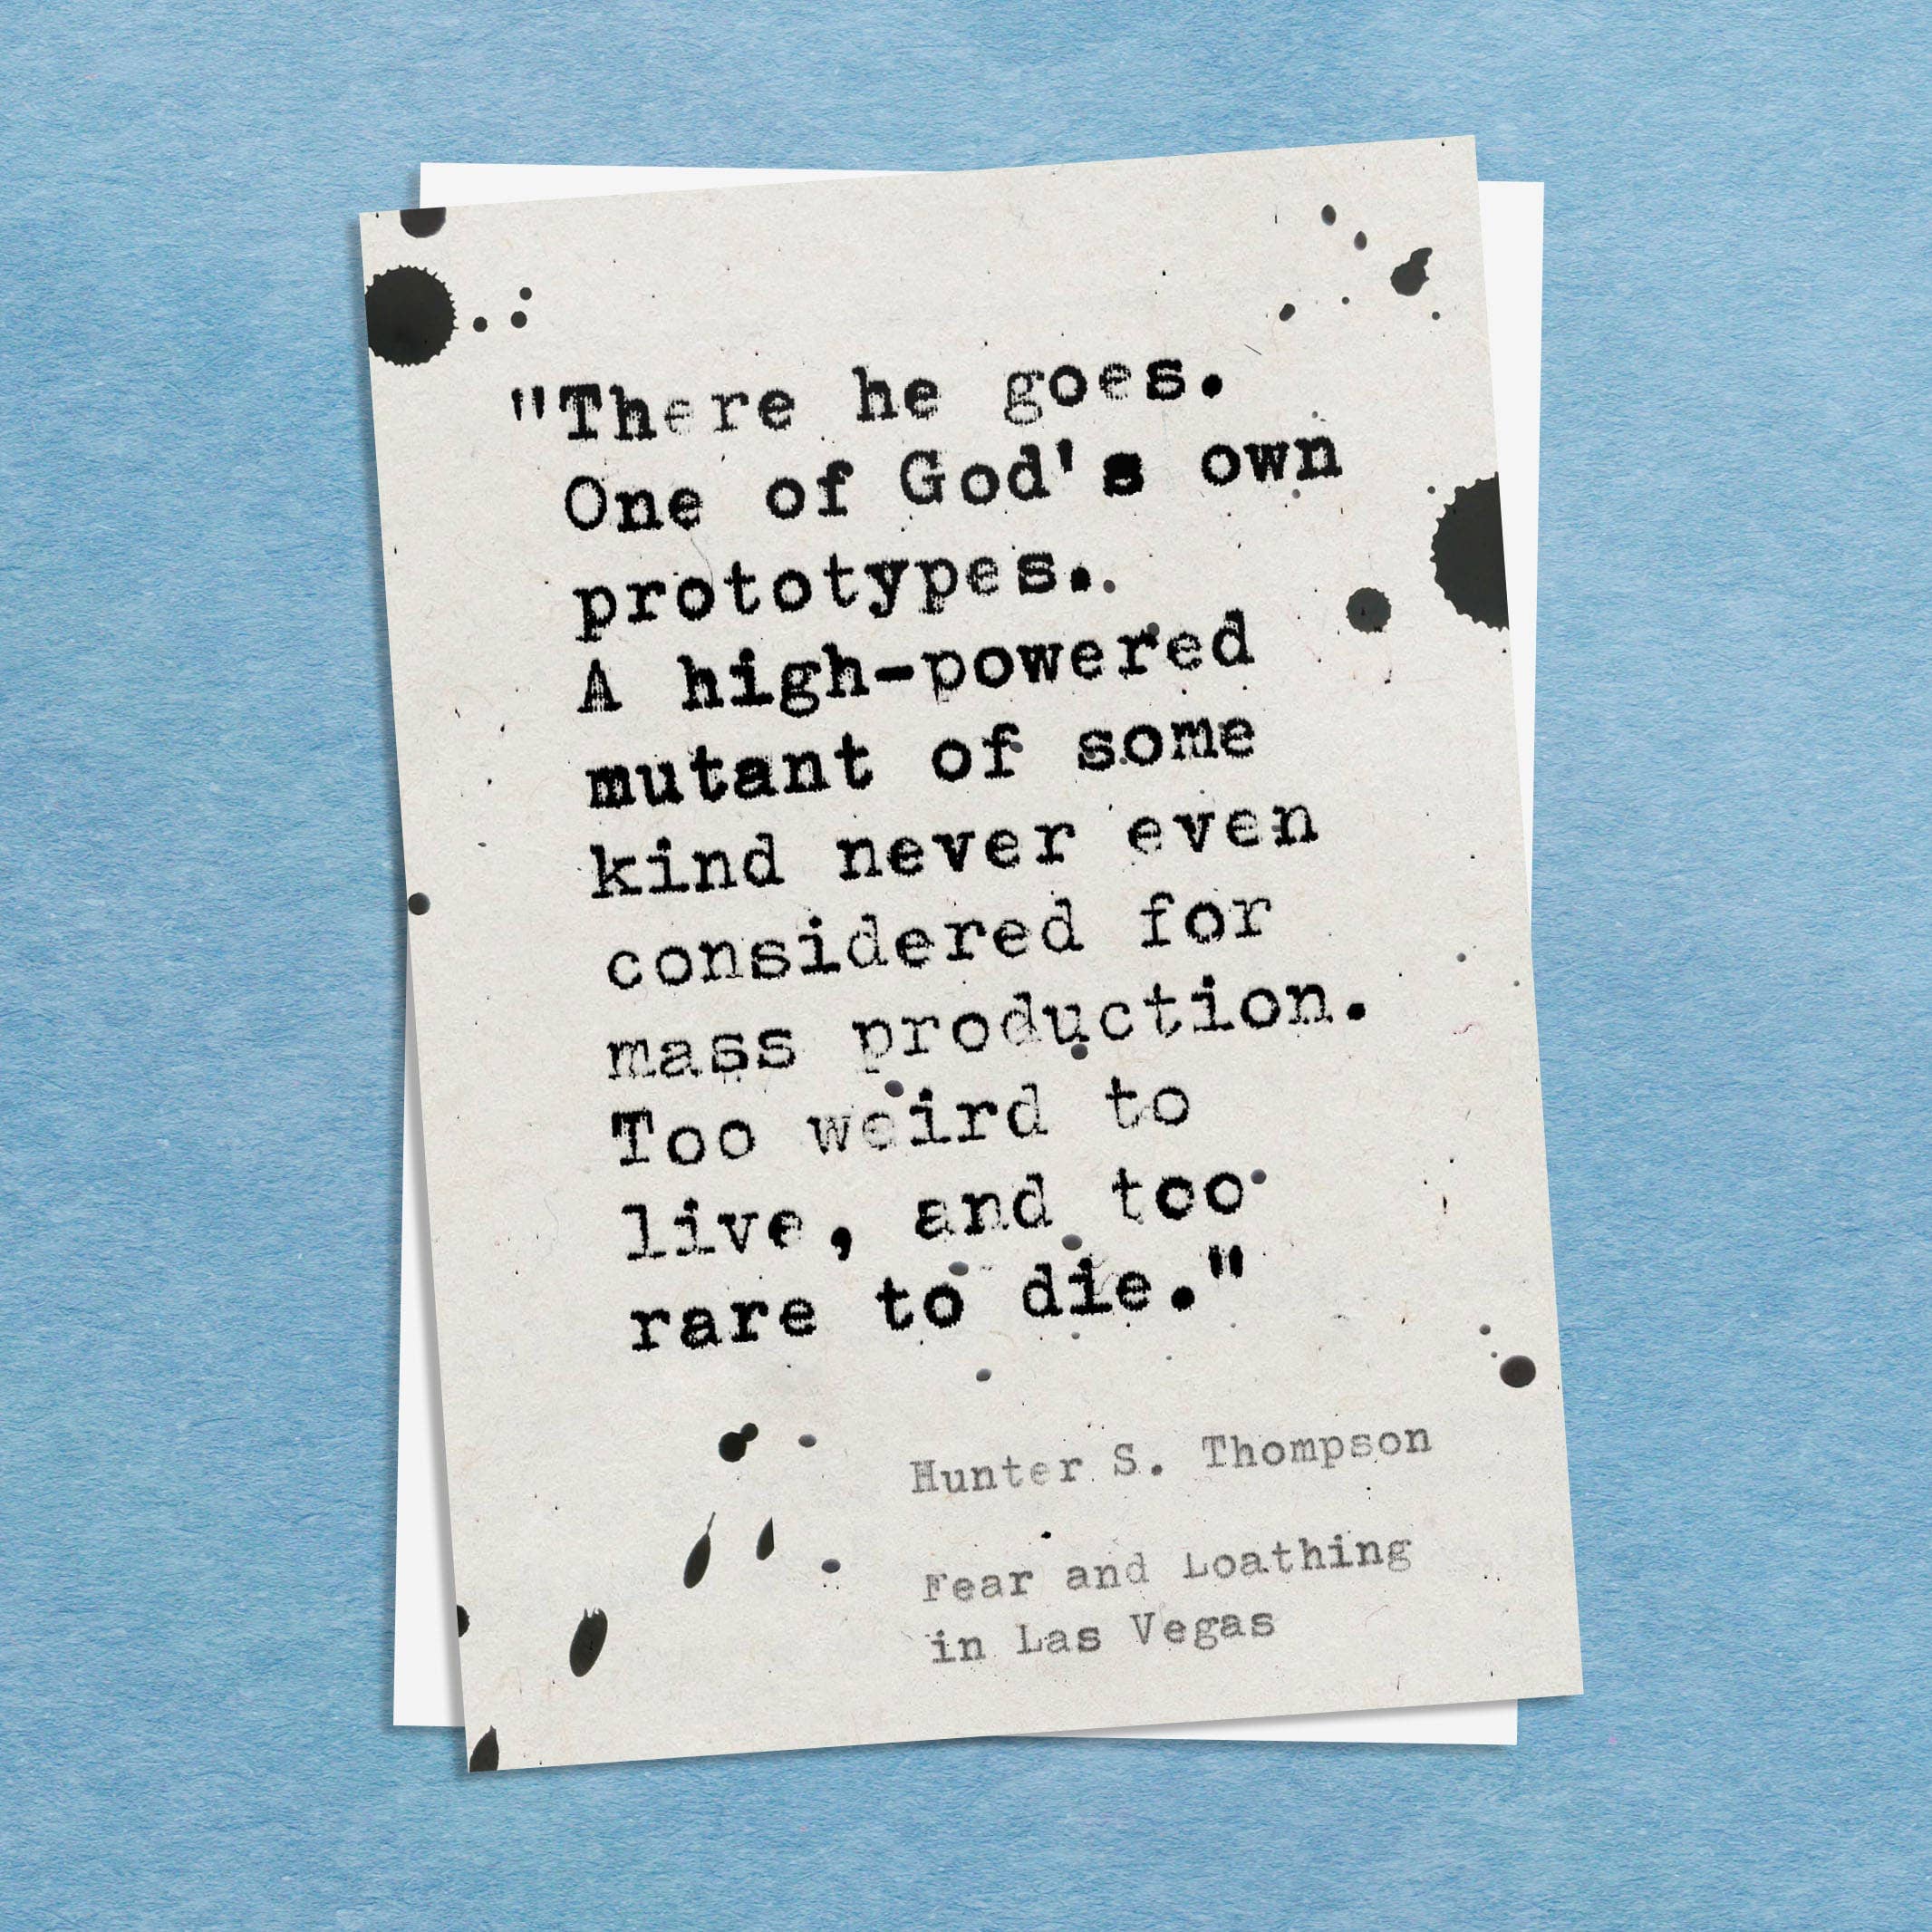 "There he goes.
One of God's own
prototypes.
A high-powered
mutant of some
kind never even
considered for
mass production.
Too weird to
live, and too
rare to die."
Hunter S. Thompson
Fear and Loathing
in Las Vegas